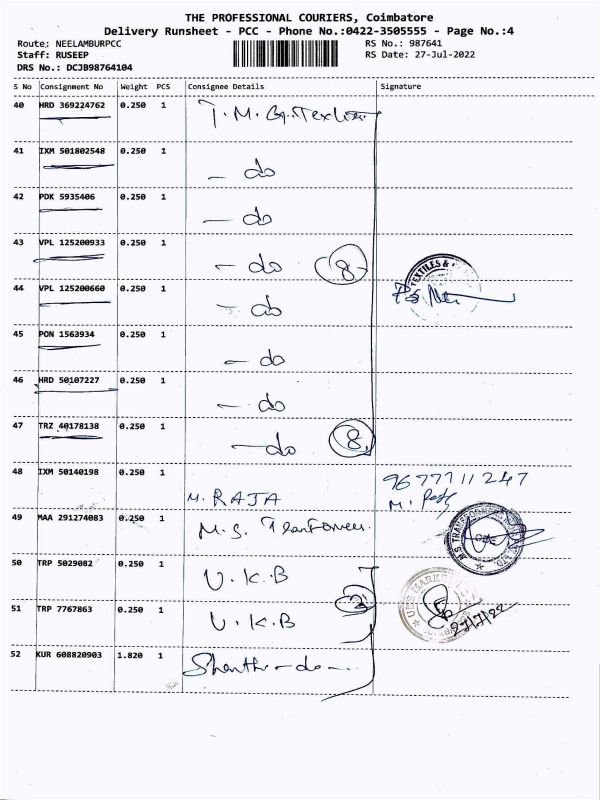 THE PROFESSIONAL COURIERS, Coimbatore
Delivery Runsheet - PCC - Phone No.:0422-3505555 - Page No.:4
Route: NEELAMBURPCC RS No.: 987641
Staff: RUSEEP RS Date: 27-Jul-2022
DRS No.: DCJB98764104
S No Consignment No Weight PCS Consignee Details Signature
40 HRD 369224762 0.250 1 T. M.
41 IXM 501802548 0.250 1 - do
42 PDK 5935406 0.250 1 - do
43 VPL 125200933 0.250 1 - do 8
TEXTILES &
44 VPL 125200660 0.250 1 - do
45 PON 1563934 0.250 1 - do
46 HRD 50107227 0.250 1 - do
47 TRZ 40178138 0.250 1 - do 8
48 IXM 50140198 0.250 1 M. RAJA 9677711247
M.
49 MAA 291274083 0.250 1 M. S.
M.S. TRANSFORMERS
50 TRP 5029082 0.250 1 U. K. B
2
51 TRP 7767863 0.250 1 U. K. B 27/7/22
52 KUR 608820903 1.820 1 Shanthi - do -